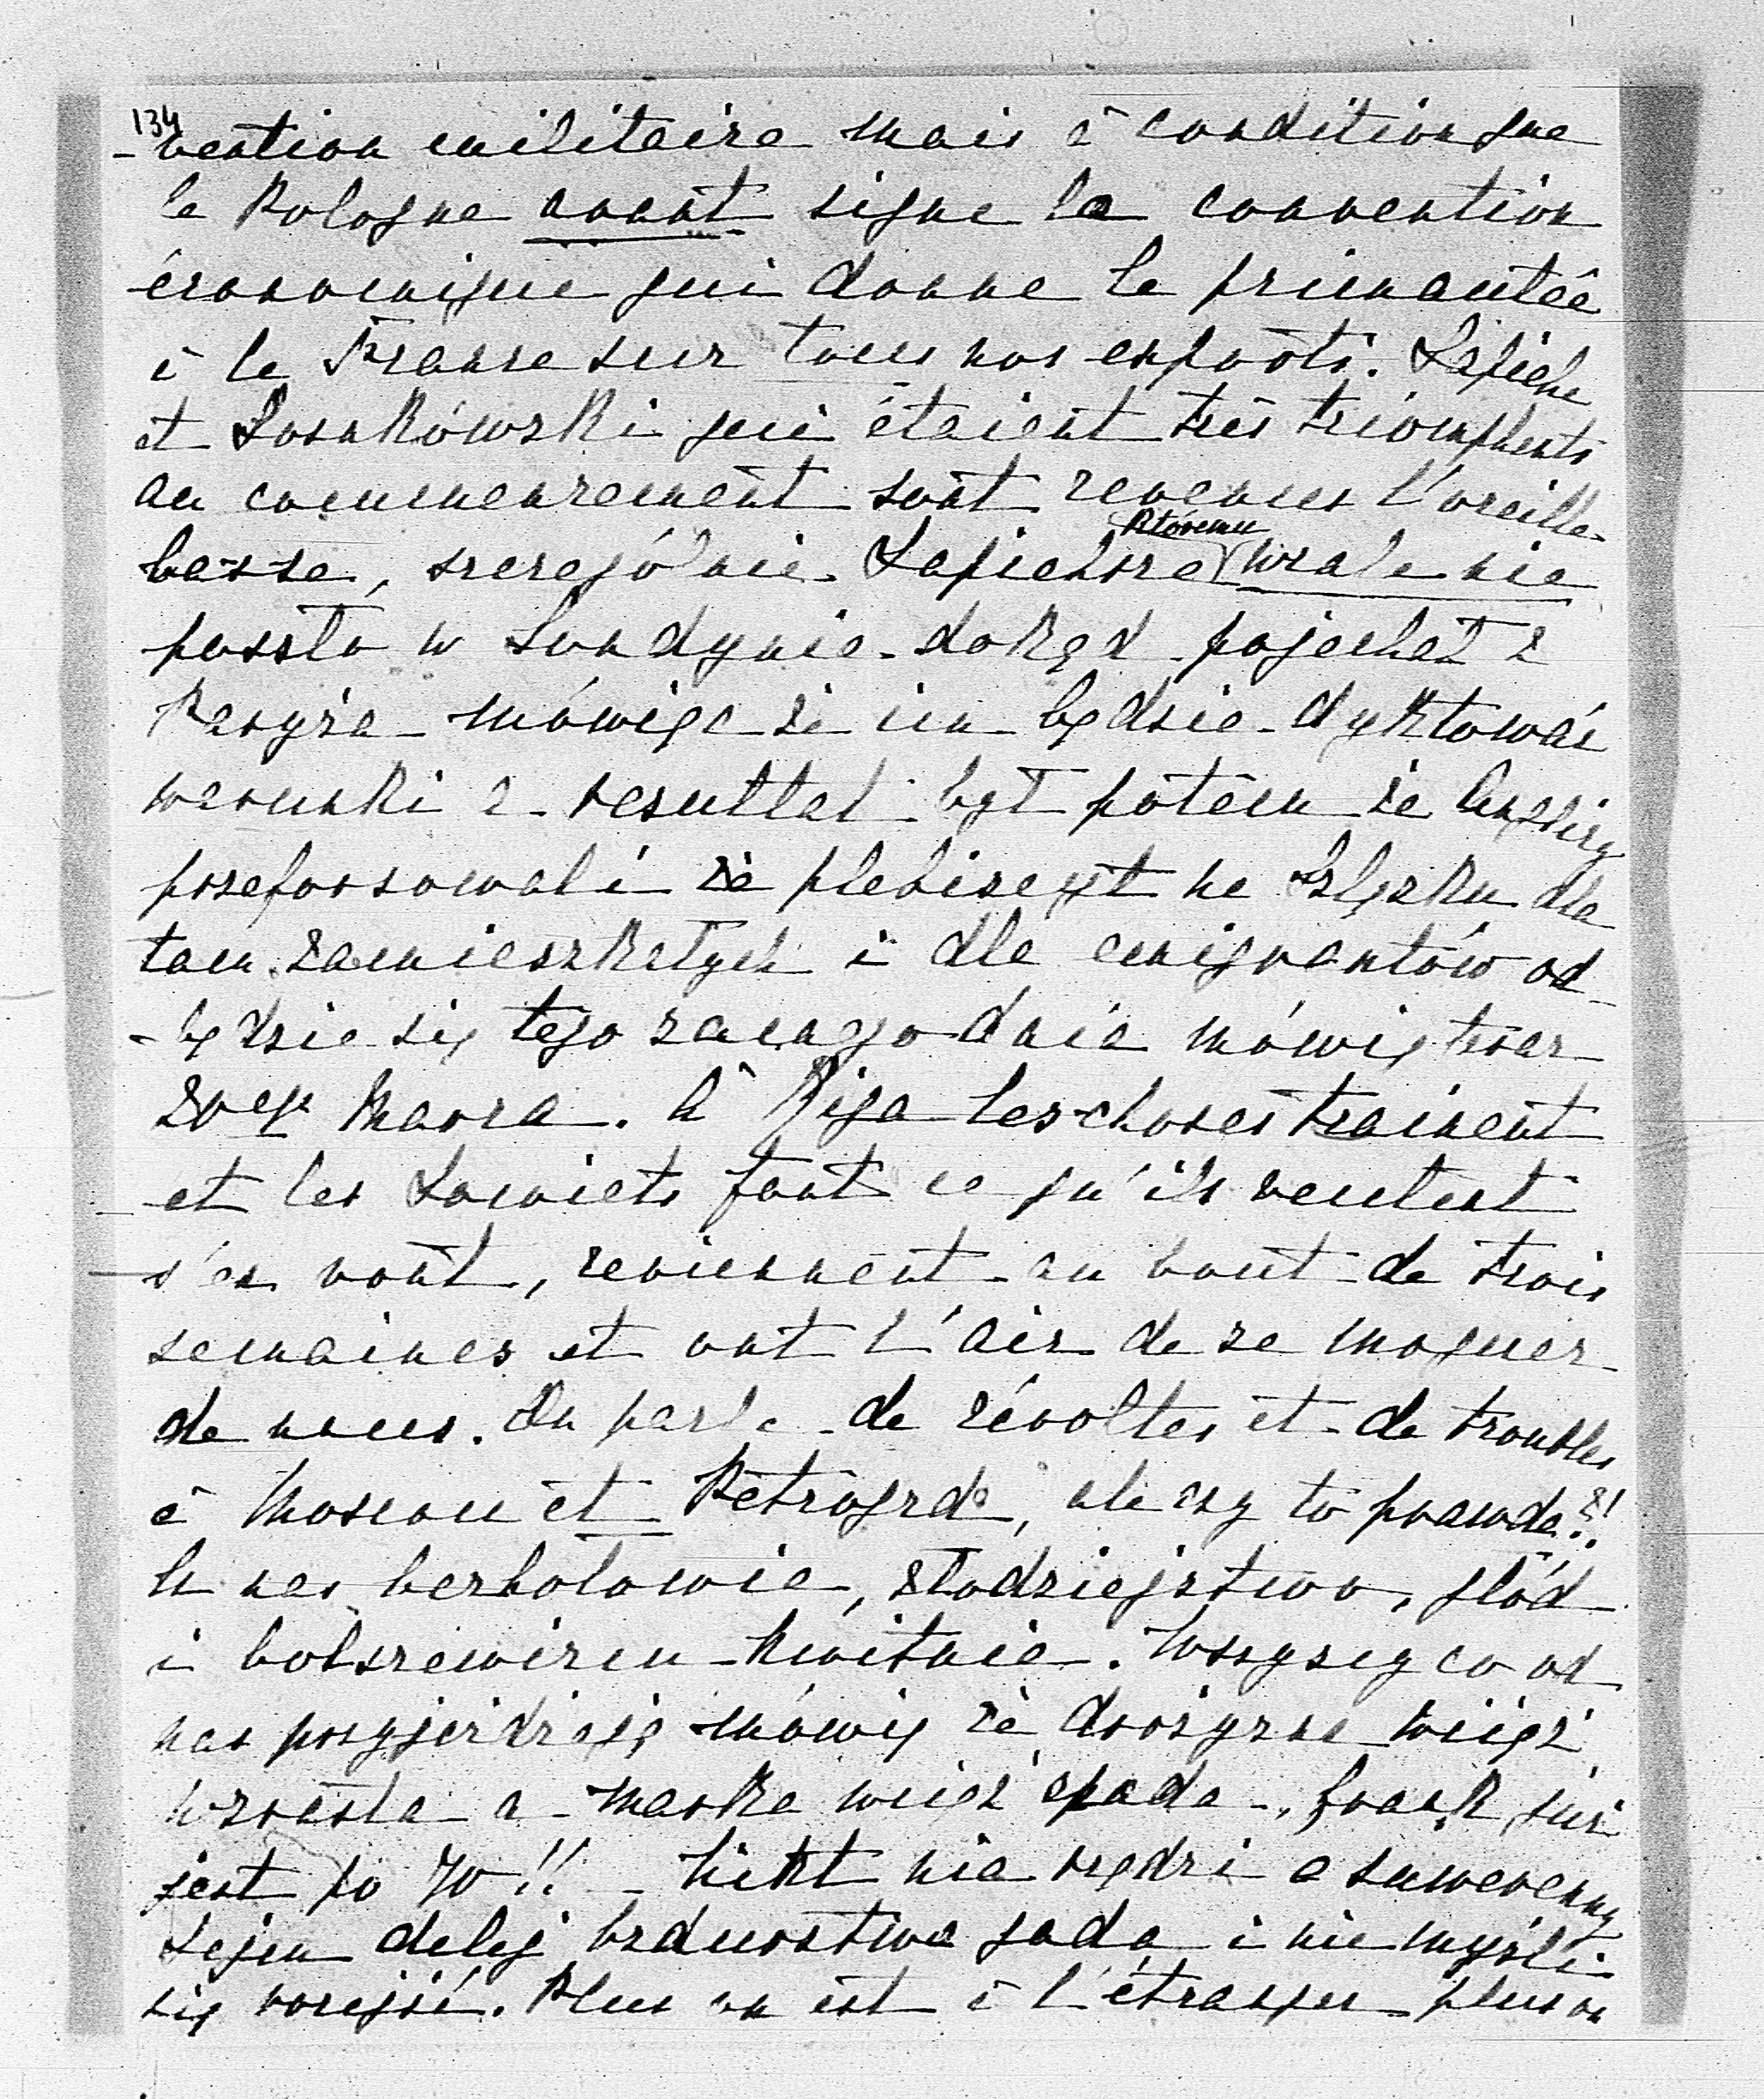 134
-vention militaire mais à condition que
la Pologne avant signe la convention
économique qui donne la primautée
à la France sur tous nos exports. Sapieha
et Sosnkówski qui étaient très triomphants
au commencement sont revenus l'oreille
basse, szczególnie Sapieha któremu wcale nie
poszło w Londynie dokąd pojechał z
Paryża mówiąc że im będzie dyktować
warunki a resultat był potém że Anglicy
przeforsowali że plebiscyt na Szląsku dla
tam zamieszkałych i dla emigrantów od-
-będzie się tego samego dnia mówią teraz
20ego Marca. A Riga les choses trainent
et les Sowiets font ce qu'ils veulent
s'en vont, reviennent au bout de trois
semaines et ont l'air de se moquer
de nous. On parle de révoltes et de troubles
à Moscou et Petrogrd, ale czy to prawda?!
U nas bezhołowie, złodziejstwo, głód
i bolszewizm kwitnie. Wszyscy co od
nas przyjeżdżają mówią że drożyzna wciąż
wzrasta a marka wciąż spada, frank już
jest po 70!! - Nikt nie rządzi a suwerenny
Sejm dalej bzdurstwa gada i nie myśli
się rozejść. Plus on est à l'étranger plus on